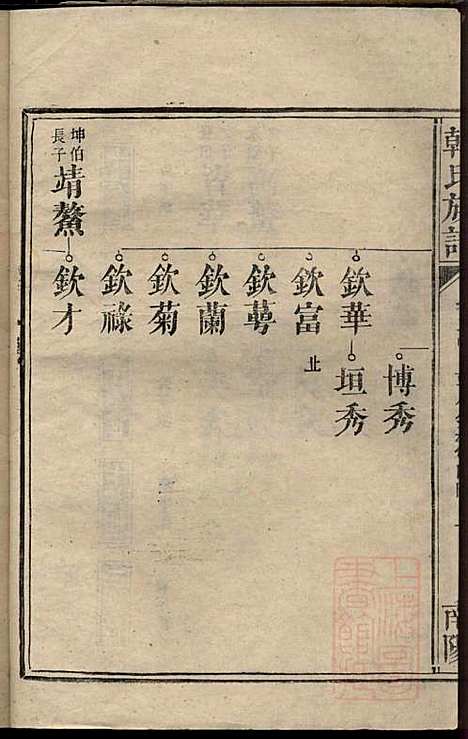 韓氏族譜
南陽
博秀
欽華
垣秀
欽富
止
欽萼
欽蘭
欽菊
欽祿
坤伯長子
靖鰲
欽才